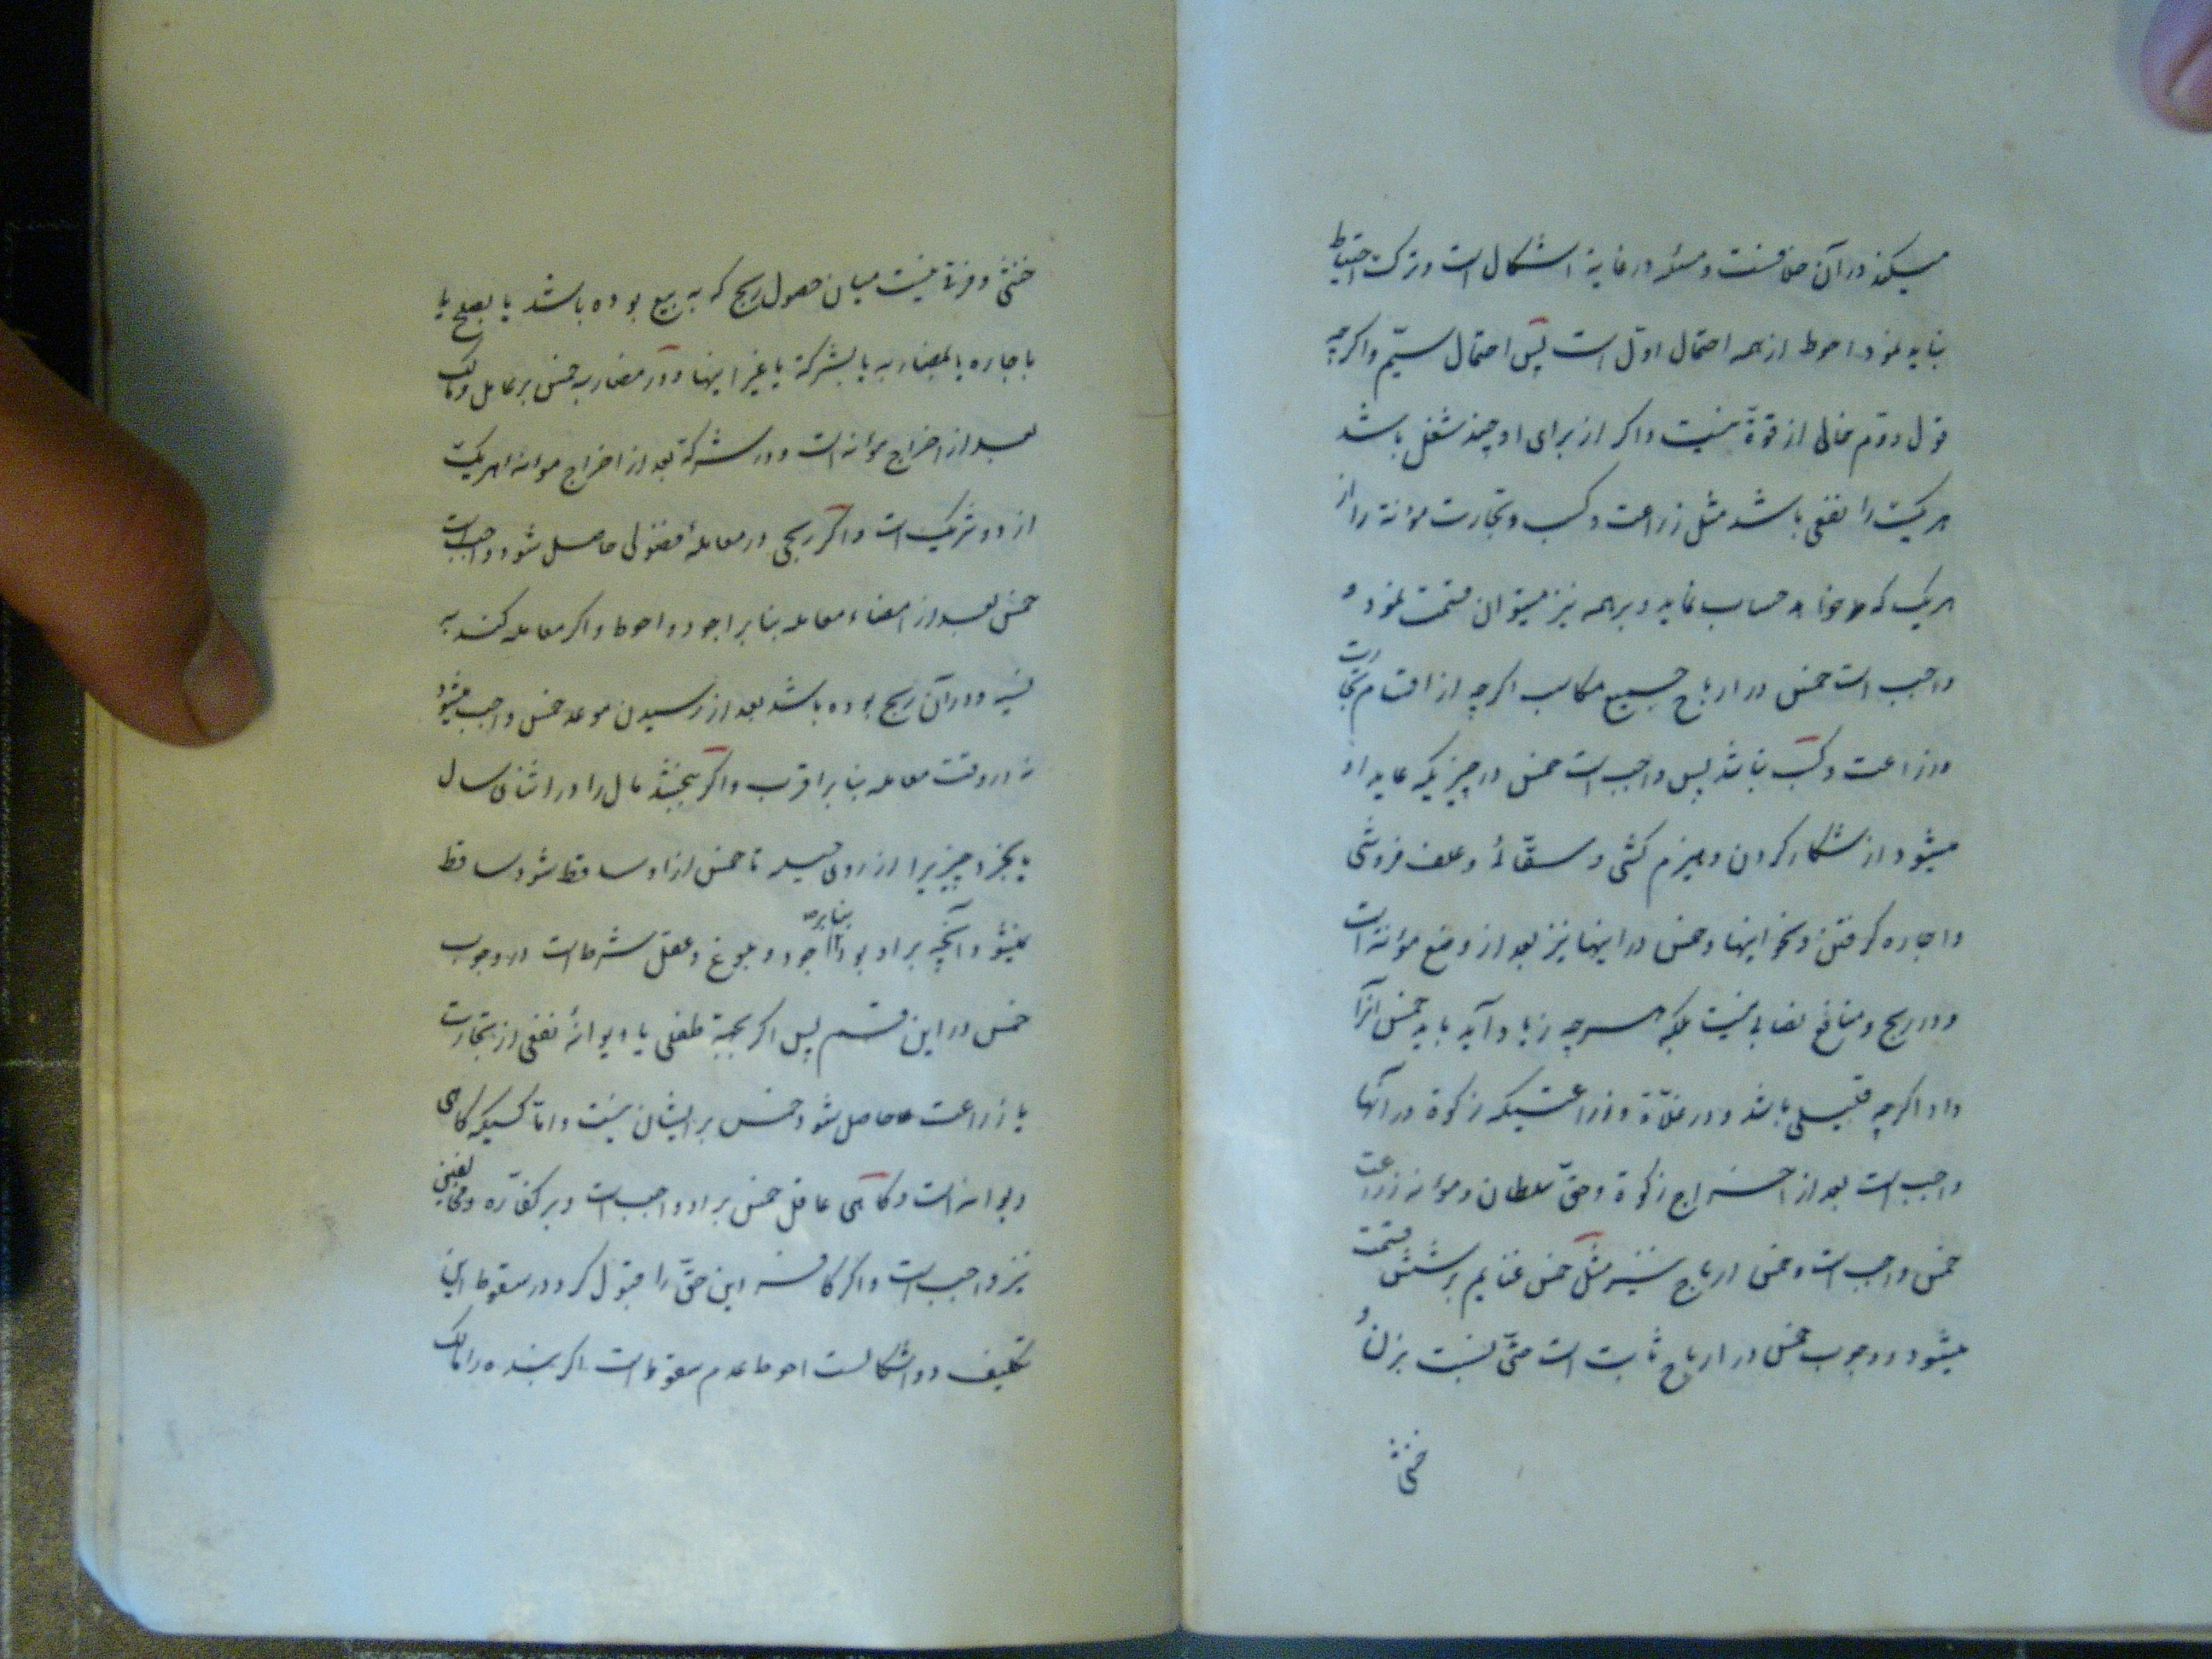 میکند در آن خلافست و مسئله در غایة اشکال است و ترک احتیاط
نباید نمود احوط از همه احتمال اوّل است پس احتمال سیّم و اکرچه
قول دوّم خالی از قوّة نیست و اکر از برای او چند شغل باشد
هر یک را نفعی باشد مثل زراعت و کسب و تجارت مؤنة را از
هر یک که خواهد حساب نماید و بر همه نیز میتوان قسمت نمود و
واجب است خمس در ارباح جمیع مکاسب اکرچه از اقسام تجارت
و زراعت و کسب نباشد پس واجب است خمس در چیزیکه عاید او
میشود از شکار کردن و هیزم کشی و سقّائی و علف فروشی
و اجاره کرفتن و نحو اینها و خمس در اینها نیز بعد از وضع مؤنة است
و در ربح و منافع نصابی نیست بلکه هرچه زیاد آید باید خمس آنرا
داد اکرچه قلیلی باشد و در غلّاة و زراعتیکه زکوة در آنها
واجب است بعد از اخراج زکوة و حقّ سلطان و مؤنه زراعت
خمس واجب است و خمس ارباح نیز مثل خمس غنایم بر شش قسمت
میشود و وجوب خمس در ارباح ثابت است حتّی نسبت بزن و
خنثی
خنثی و فرق نیست میان حصول ربح که به بیع بوده باشد یا بصلح یا
باجاره یا بمضاربه یا بشرکة یا بغیر اینها و در مضاربه خمس بر عامل و مالک
بعد از اخراج مؤنه است و در شرکة بعد از اخراج مؤنه هر یک
از دو شریک است و اکر ربحی در معامله فضولی حاصل شود واجب است
خمس بعد از امضاء معامله بنا بر اجود و احوط و اکر معامله کنند به
نسیه و در آن ربح بوده باشد بعد از رسیدن موعد خمس واجب میشود
نه در وقت معامله بنا بر اقرب و اکر ببخشد مال را در اثنای سال
یا بخرد چیزیرا از روی حیله تا خمس از او ساقط شود ساقط
نمیشود آنچه بر او بود بنا بر اجود و بلوغ و عقل شرط است در وجوب
خمس در این قسم پس اکر بجهة طفلی یا دیوانهٔ نفعی از تجارت
یا زراعت حاصل شود خمس بر ایشان نیست و امّا کسیکه کاهی
دیوانه است و کاهی عاقل خمس بر او واجب است و بر کفّاره و مخالفین
نیز واجب است و اکر کافر این حقّ را قبول کرد در سقوط این
تکلیف دو اشکالست احوط عدم سقوط است اکر بنده را مالک